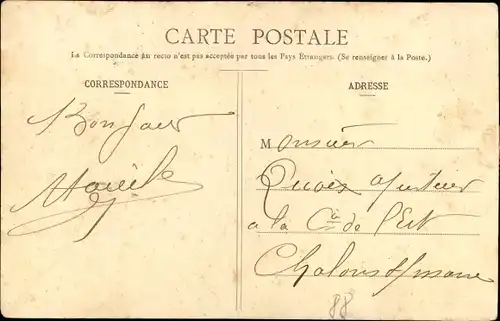 CARTE POSTALE
La Correspondance au recto n'est pas acceptée par tous les Pays Etrangers. (Se renseigner à la Poste.)
CORRESPONDANCE
ADRESSE
Bonjour
Monsieur
a la Cie de l'Est
Chalons s/ Marne
88